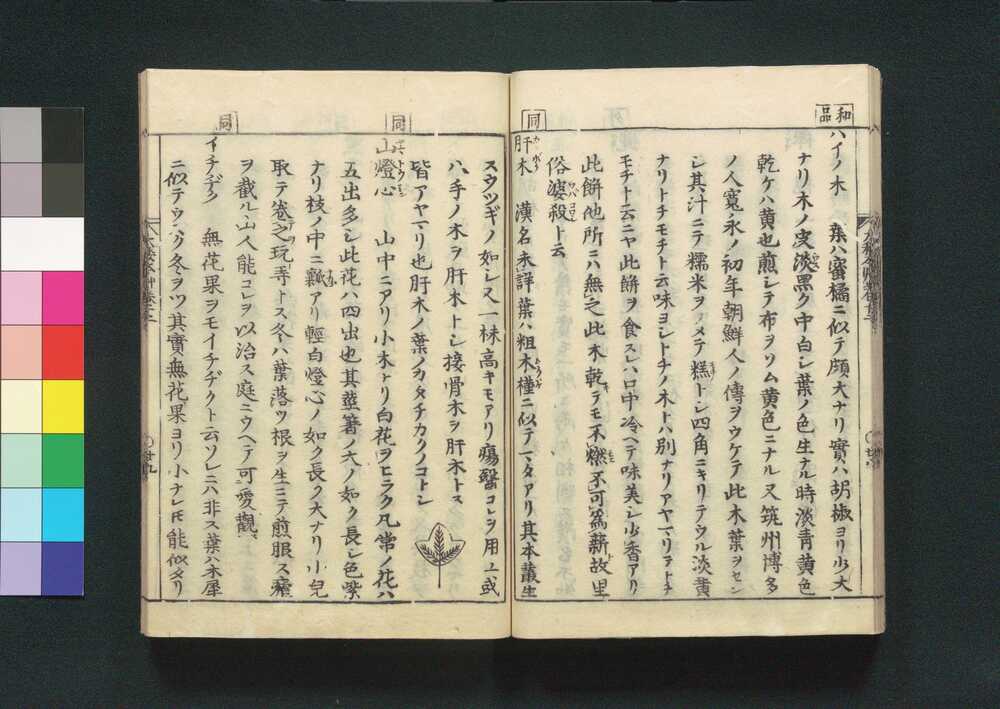 和品
ハイノ木 葉ハ蜜橘ニ似テ頗大ナリ實ハ胡椒ヨリ少大
ナリ木ノ皮淡黒ク中白シ葉ノ色生ナル時淡青黄色
乾ケハ黄也煎シテ布ヲソム黄色ニナル又筑州博多
ノ人寛永ノ初年朝鮮人ノ傳ヲウケテ此木葉ヲセン
シ其汁ニテ糯米ヲソメテ糕トシ四角ニキリテウル淡黄
ナリトチモチト云味ヨシトチノ木トハ別ナリアヤマリテトチ
モチト云ニヤ此餅ヲ食スレハ口中冷ヘテ味美シ少香アリ
此餅他所ニハ無之此木乾テモ不燃不可為薪故里
俗婆殺ト云
同
肝木 漢名未詳葉ハ粗木槿ニ似テマタアリ其本叢生
スウツギノ如シ又一株高キモアリ瘍醫コレヲ用ユ或
ハ手ノ木ヲ肝木トシ接骨木ヲ肝木トス
皆アヤマリ也肝木ノ葉ノカタチカクノコトシ
同
山燈心 山中ニアリ小木ナリ白花ヲヒラク凡常ノ花ハ
五出多シ此花ハ四出也其莖箸ノ大ノ如ク長シ色紫
ナリ枝ノ中ニ瓤アリ輕白燈心ノ如ク長ク大ナリ小兒
取テ卷之玩弄トス冬ハ葉落ツ根ヲ生ニテ煎服ス瘧
ヲ截ル山人能コレヲ以治ス庭ニウヘテ可愛觀
同
イチヂク 無花果ヲモイチヂクト云ソレニハ非ス葉ハ木犀
ニ似テウスク冬ヲツ其實無花果ヨリ小ナレ𪜈能似タリ